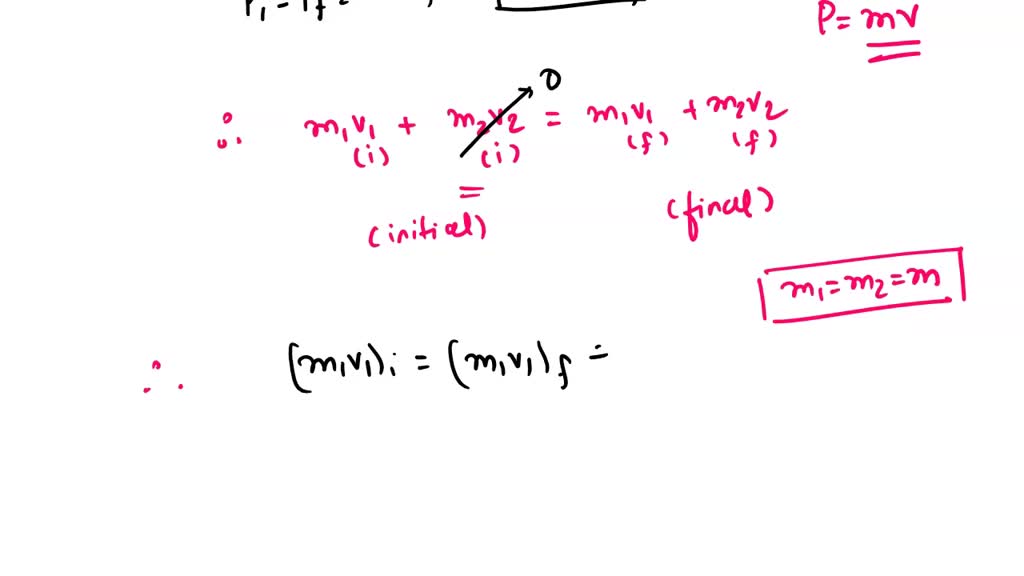 P = mv
∴ m₁v₁ + m₂v₂ = m₁v₁ + m₂v₂
0
(i) (i) (f) (f)
=
(initial) (final)
m₁ = m₂ = m
∴ (m₁v₁)i = (m₁v₁)f =